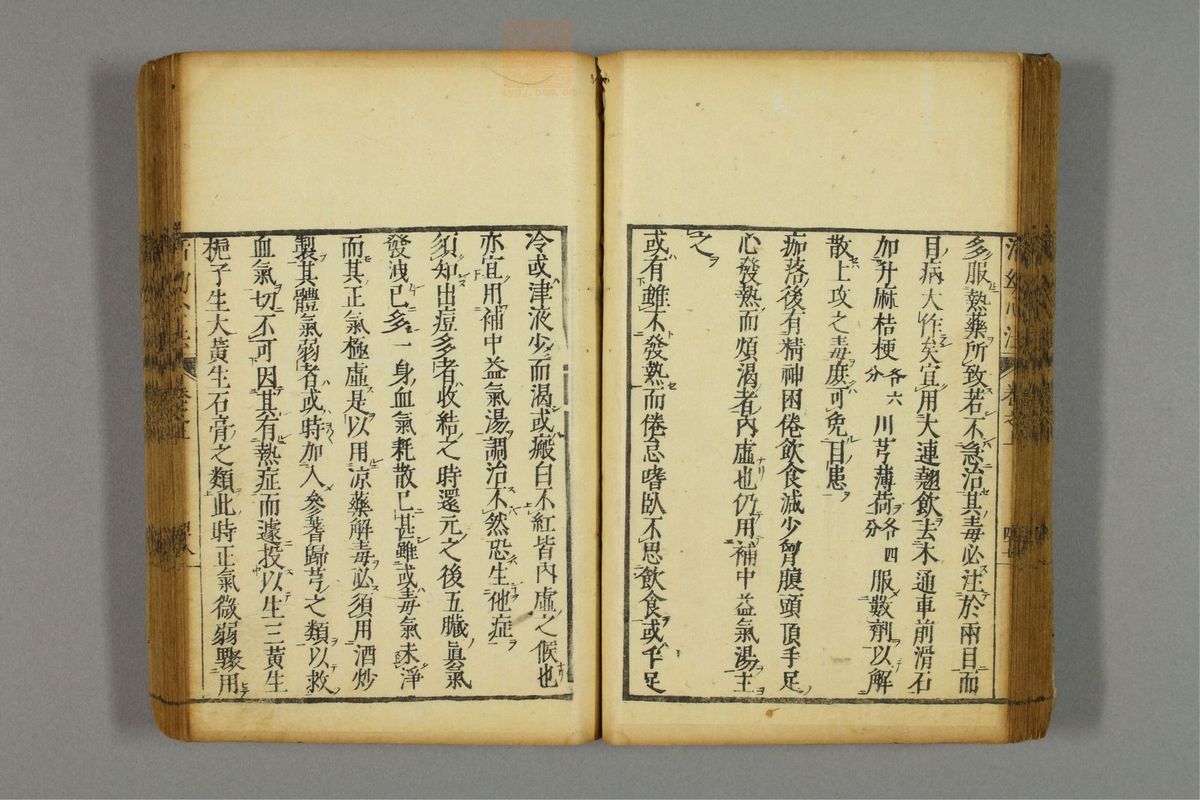 多服熱藥所致若不急治其毒必注於兩目而
目病大作矣宜用大連翹飲去木通車前滑石
加升麻桔梗各六分川芎薄荷各四分服數劑以解
散上攻之毒庶可免目患
痂落後有精神困倦飲食減少胷腹頭頂手足
心發熱而煩渴者內虛也仍用補中益氣湯主
之
或有雖不發熱而倦怠嗜臥不思飲食或手足
冷或津液少而渴或瘢白不紅皆內虛之候也
亦宜用補中益氣湯調治不然恐生他症
須知出痘多者收結之時還元之後五臟眞氣
發洩已多一身血氣耗散已甚雖或毒氣未淨
而其正氣極虛是以用凉藥解毒必須用酒炒
製其體氣弱者或時加入參芪歸芎之類以救
血氣切不可因其有熱症而遽投以生三黃生
梔子生大黃生石膏之類此時正氣微弱驟用